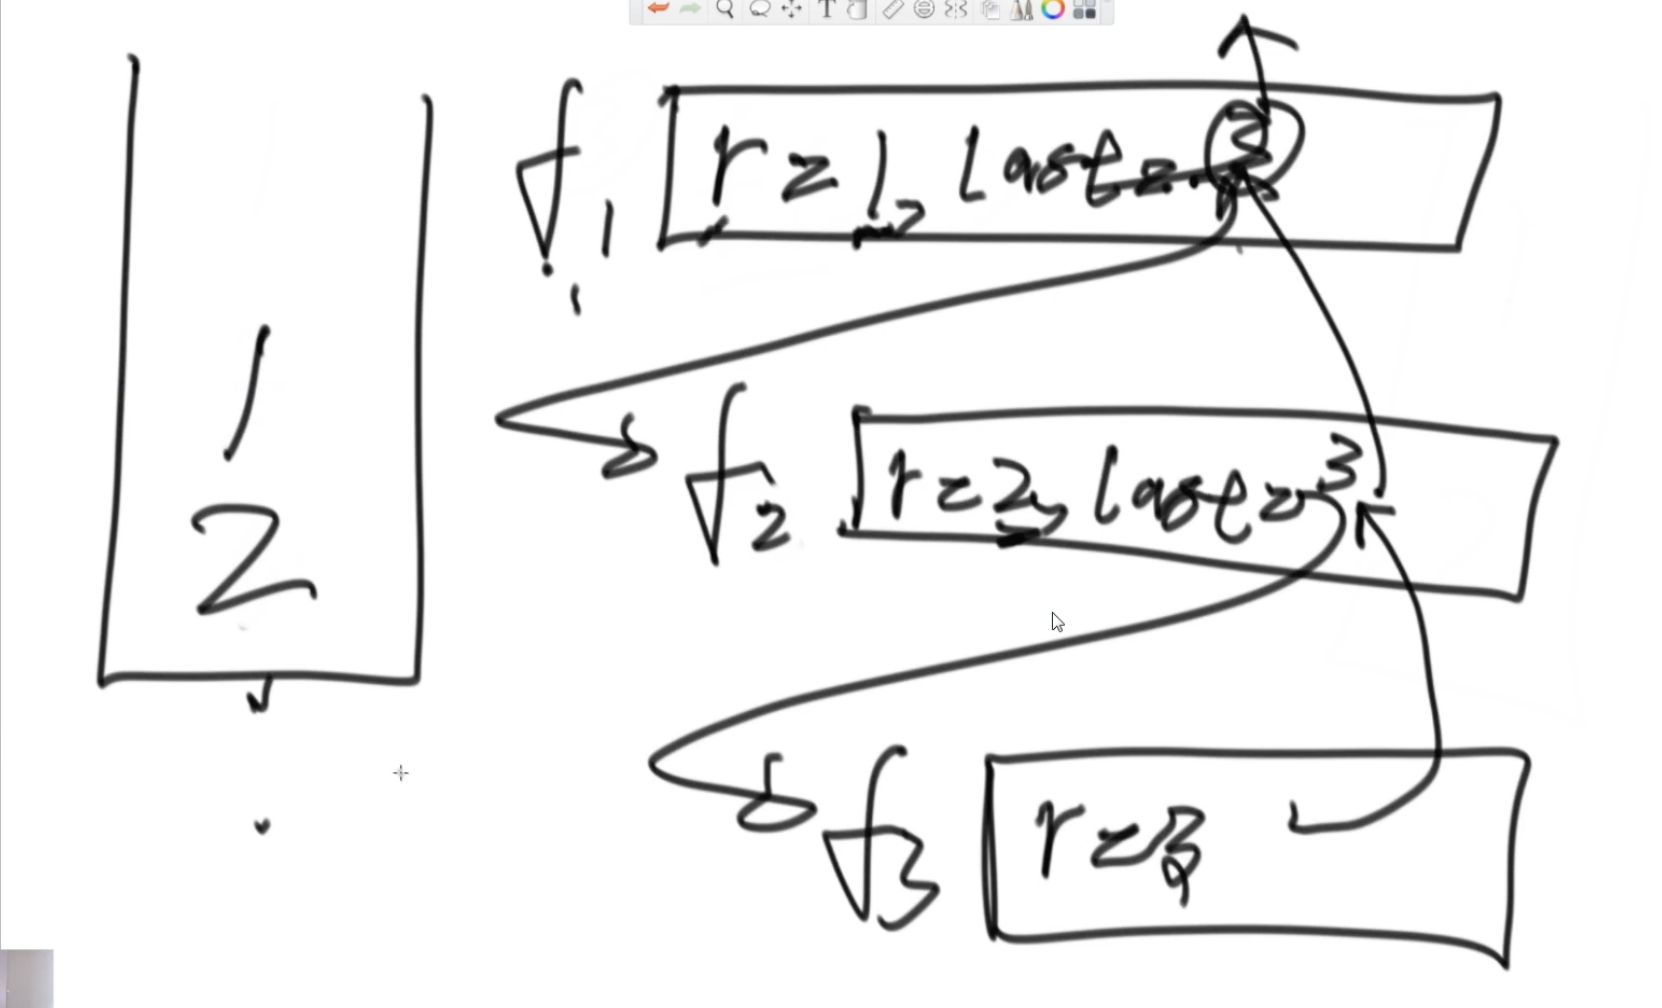 f1 r=1, last=3
1
2
f2 r=2, last=3
f3 r=3
T